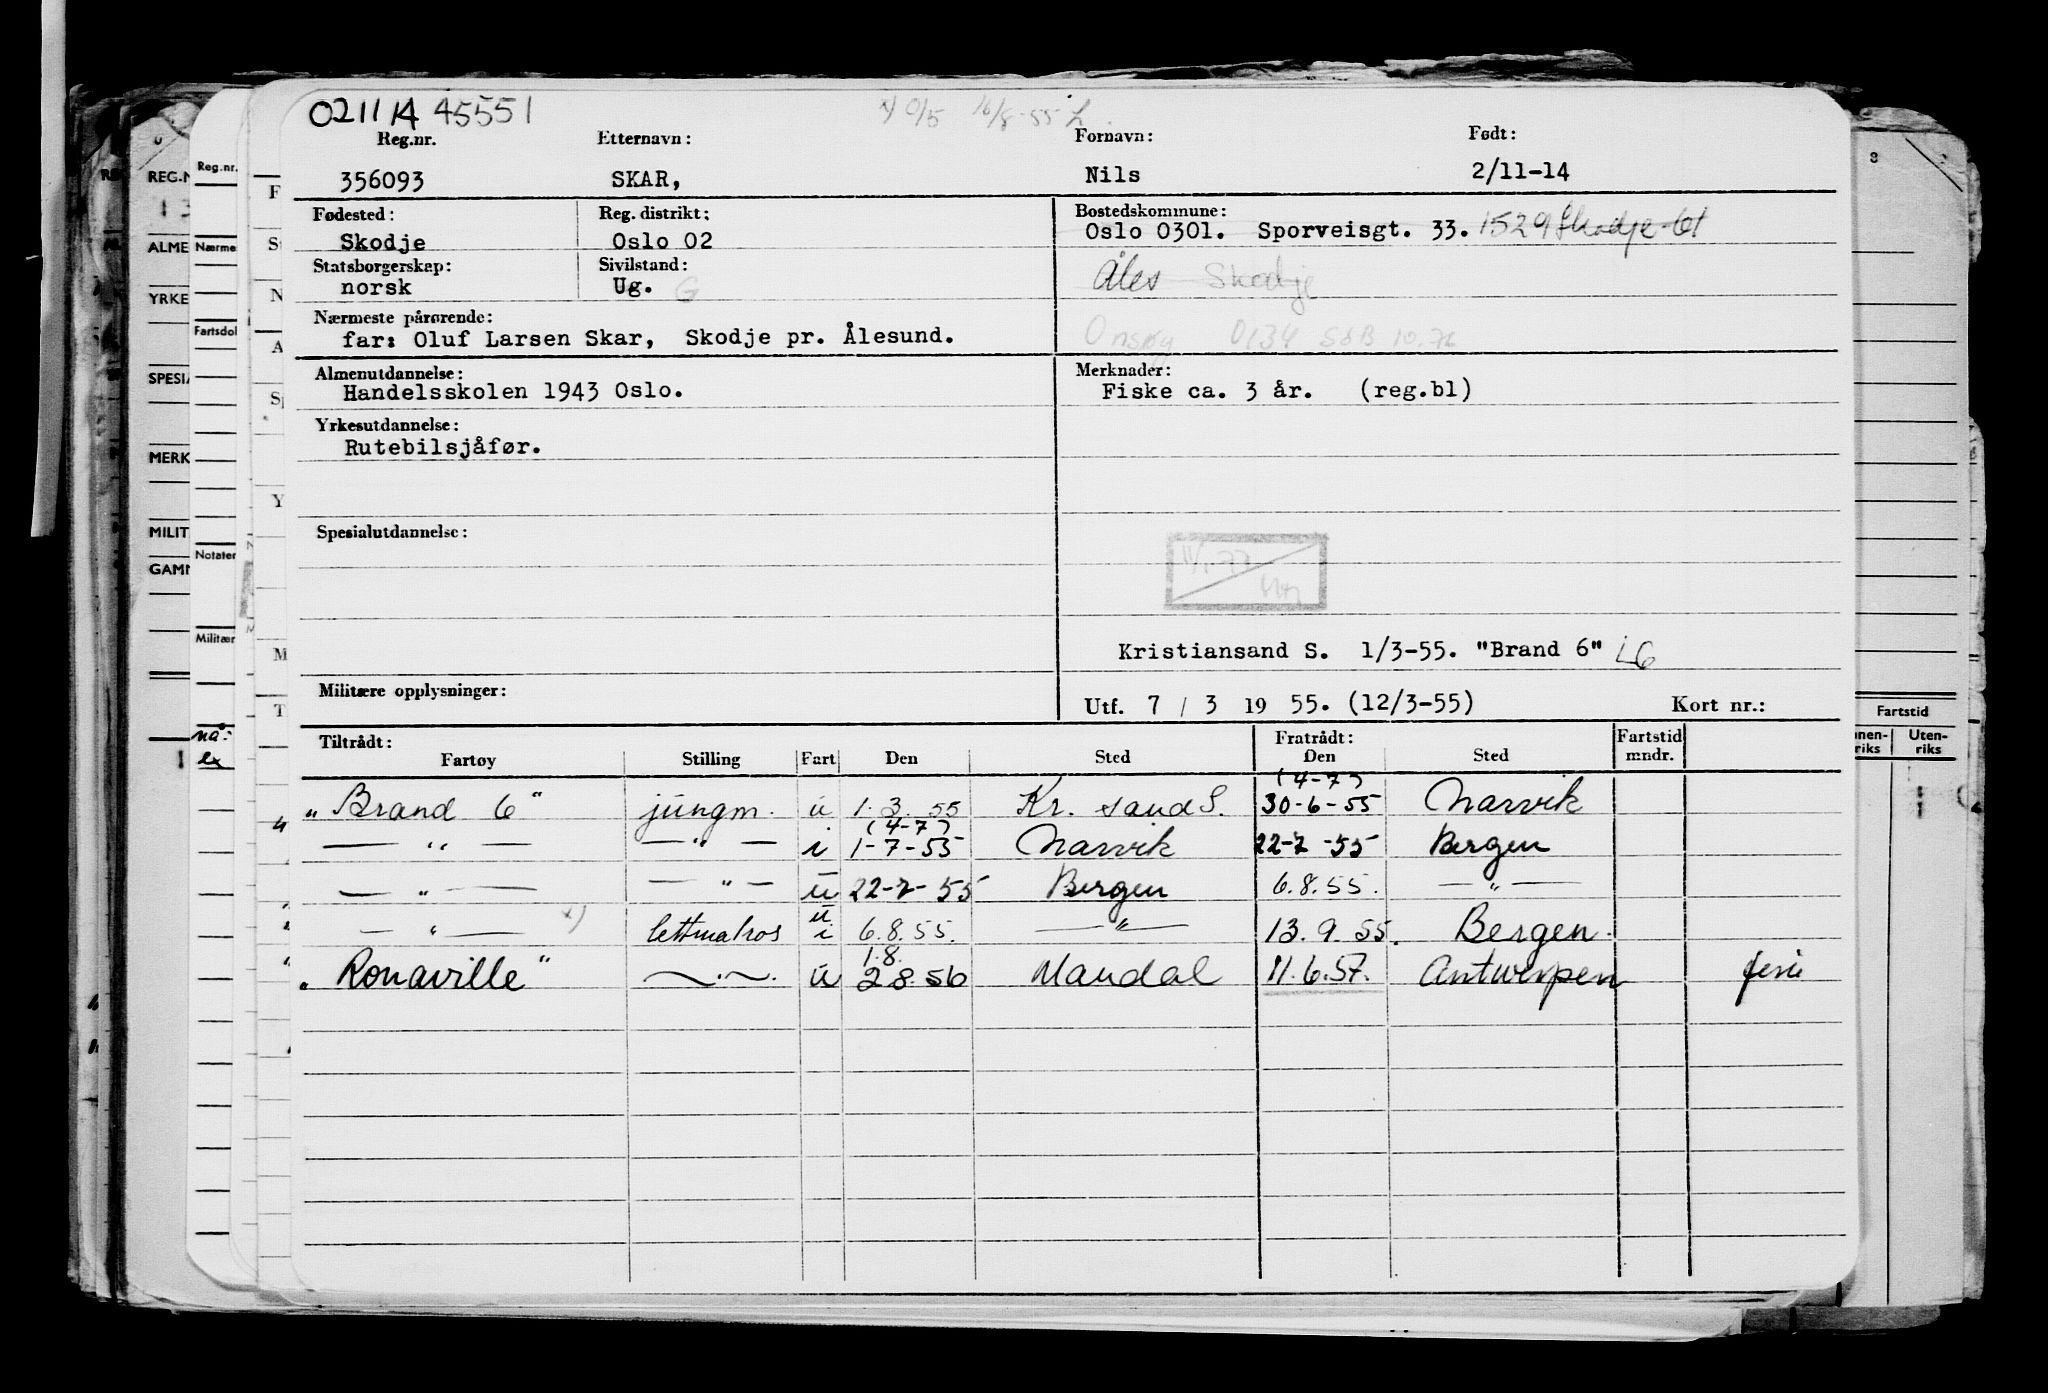 021114 45551
x) 0/5 16/8-55
Reg.nr. Etternavn: Fornavn: Født:
356093 SKAR, Nils 2/11-14
Fødested: Reg. distrikt: Bostedskommune:
Skodje Oslo 02 Oslo 0301. Sporveisgt. 33. 1529 Skodje-61
Statsborgerskap: Sivilstand:
norsk Ug. G Åles Skodje
Nærmeste pårørende:
far: Oluf Larsen Skar, Skodje pr. Ålesund. Onsøy 0134 SdB 10.76
Almenutdannelse: Merknader:
Handelsskolen 1943 Oslo. Fiske ca. 3 år. (reg.bl)
Yrkesutdannelse:
Rutebilsjåfør.
Spesialutdannelse:
Kristiansand S. 1/3-55. "Brand 6" LG
Militære opplysninger: Utf. 7 / 3 19 55. (12/3-55) Kort nr.:
Tiltrådt: Fratrådt: Fartstid
Fartøy Stilling Fart Den Sted Den Sted mndr.
(4-7)
"Brand 6" jungm. u 1.3.55 Kr. sand S. 30-6-55 Narvik
(4-7)
— " — — " — i 1-7-55 Narvik 22-7-55 Bergen
— " — — " — u 22-7-55 Bergen 6.8.55. — " —
u
— " — x) lettmatros i 6.8.55. — " — 13.9.55. Bergen.
1.8.
"Ronaville" —.—. u 2.8.56 Mandal 11.6.57. Antwerpen ferie
REG.N
ALME
YRKE
SPESIA
MERK
MILIT
GAMN
Reg.nr.
Nærme
Fartsdol
Notater
Militær
nå:
Fartstid
Uten-
riks